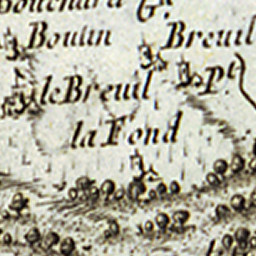 Bouchard Gr.
Bouin Breuil
le Breuil Pt
la Fond